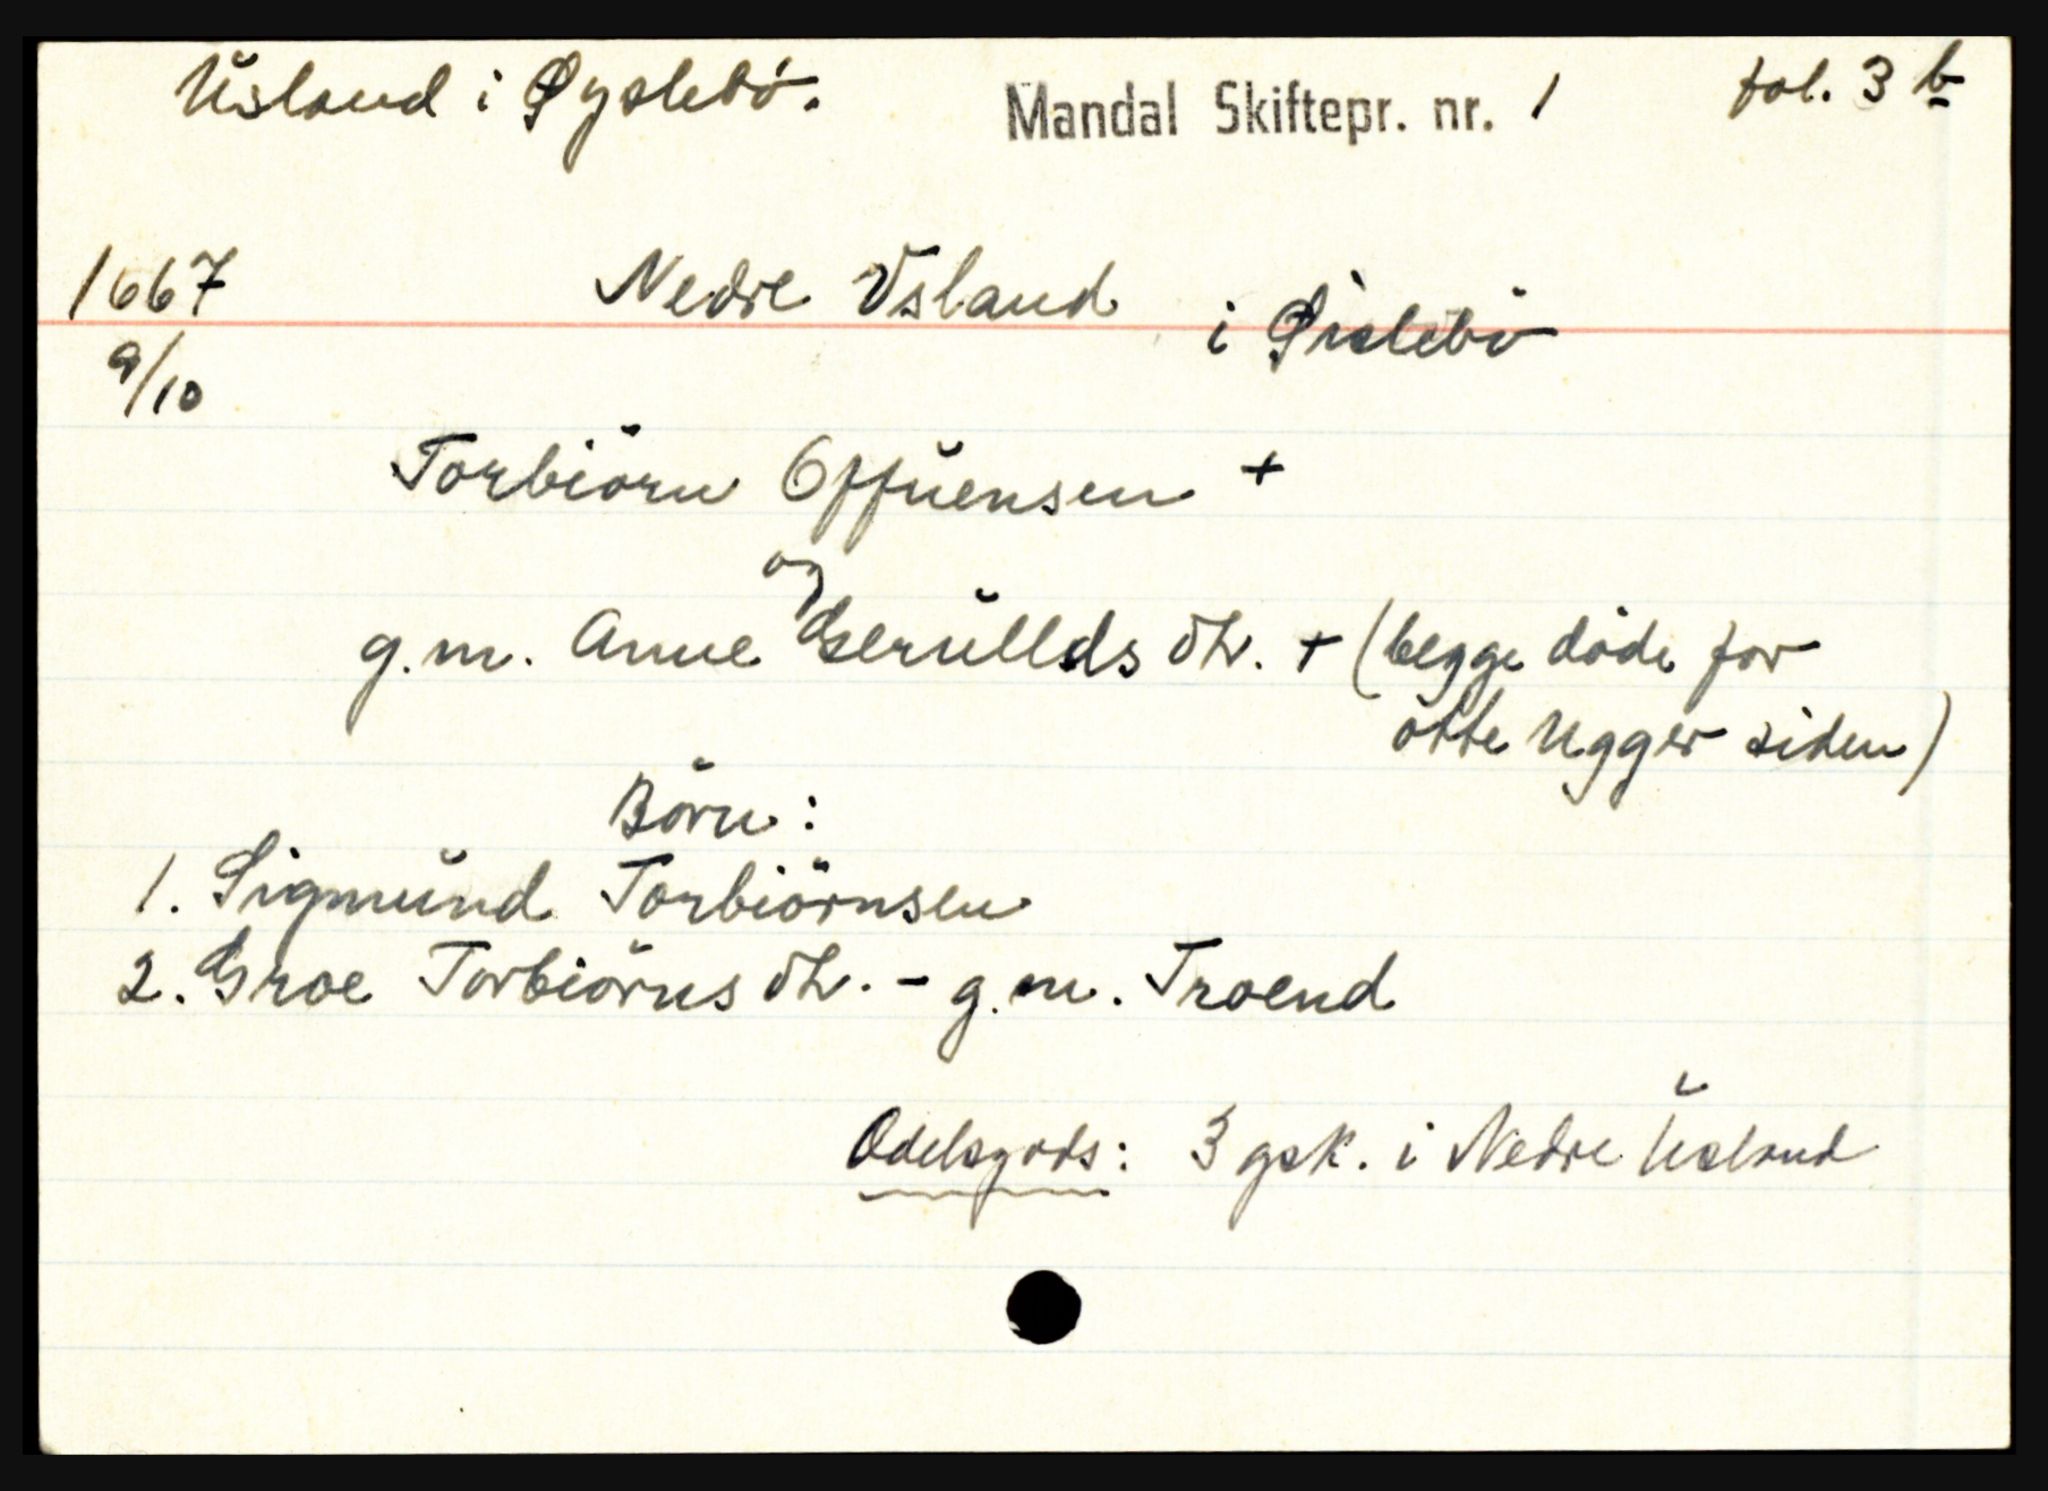 Usland i Øyslebö. Mandal Skiftepr. nr. 1 fol. 3 b
1667 Nedre Vsland i Øislebö
9/10
Torbiörn Offuensen +
og
g.m. Anne Gerullds dtr. + (begge döde for
otte Ugger siden)
Börn:
1. Sigmund Torbiörnsen
2. Groe Torbiörns dtr. - g.m. Troend
Odelsgods: 3 gsk. i Nedre Usland